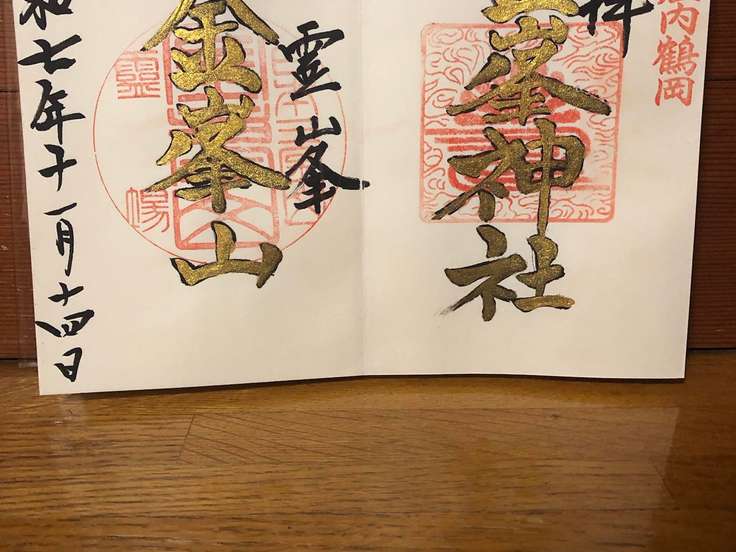 内鶴岡
拝
金峯神社
霊峯
金峯山
和七年十一月十四日